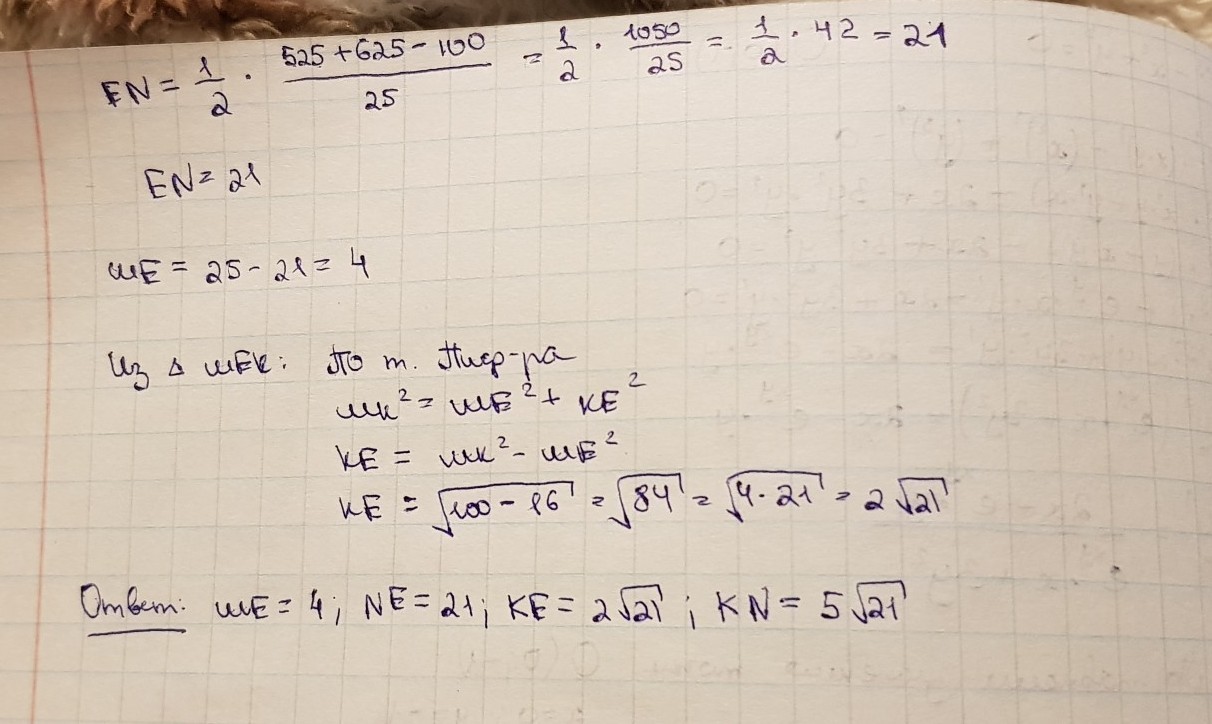 EN = 1/2 · (525 + 625 - 100)/25 = 1/2 · 1050/25 = 1/2 · 42 = 21
EN = 21
ME = 25 - 21 = 4
Из Δ MEK: По т. Пиф-ра
MK² = ME² + KE²
KE = MK² - ME²
KE = √(100 - 16) = √84 = √(4·21) = 2√21
Ответ: ME = 4; NE = 21; KE = 2√21; KN = 5√21